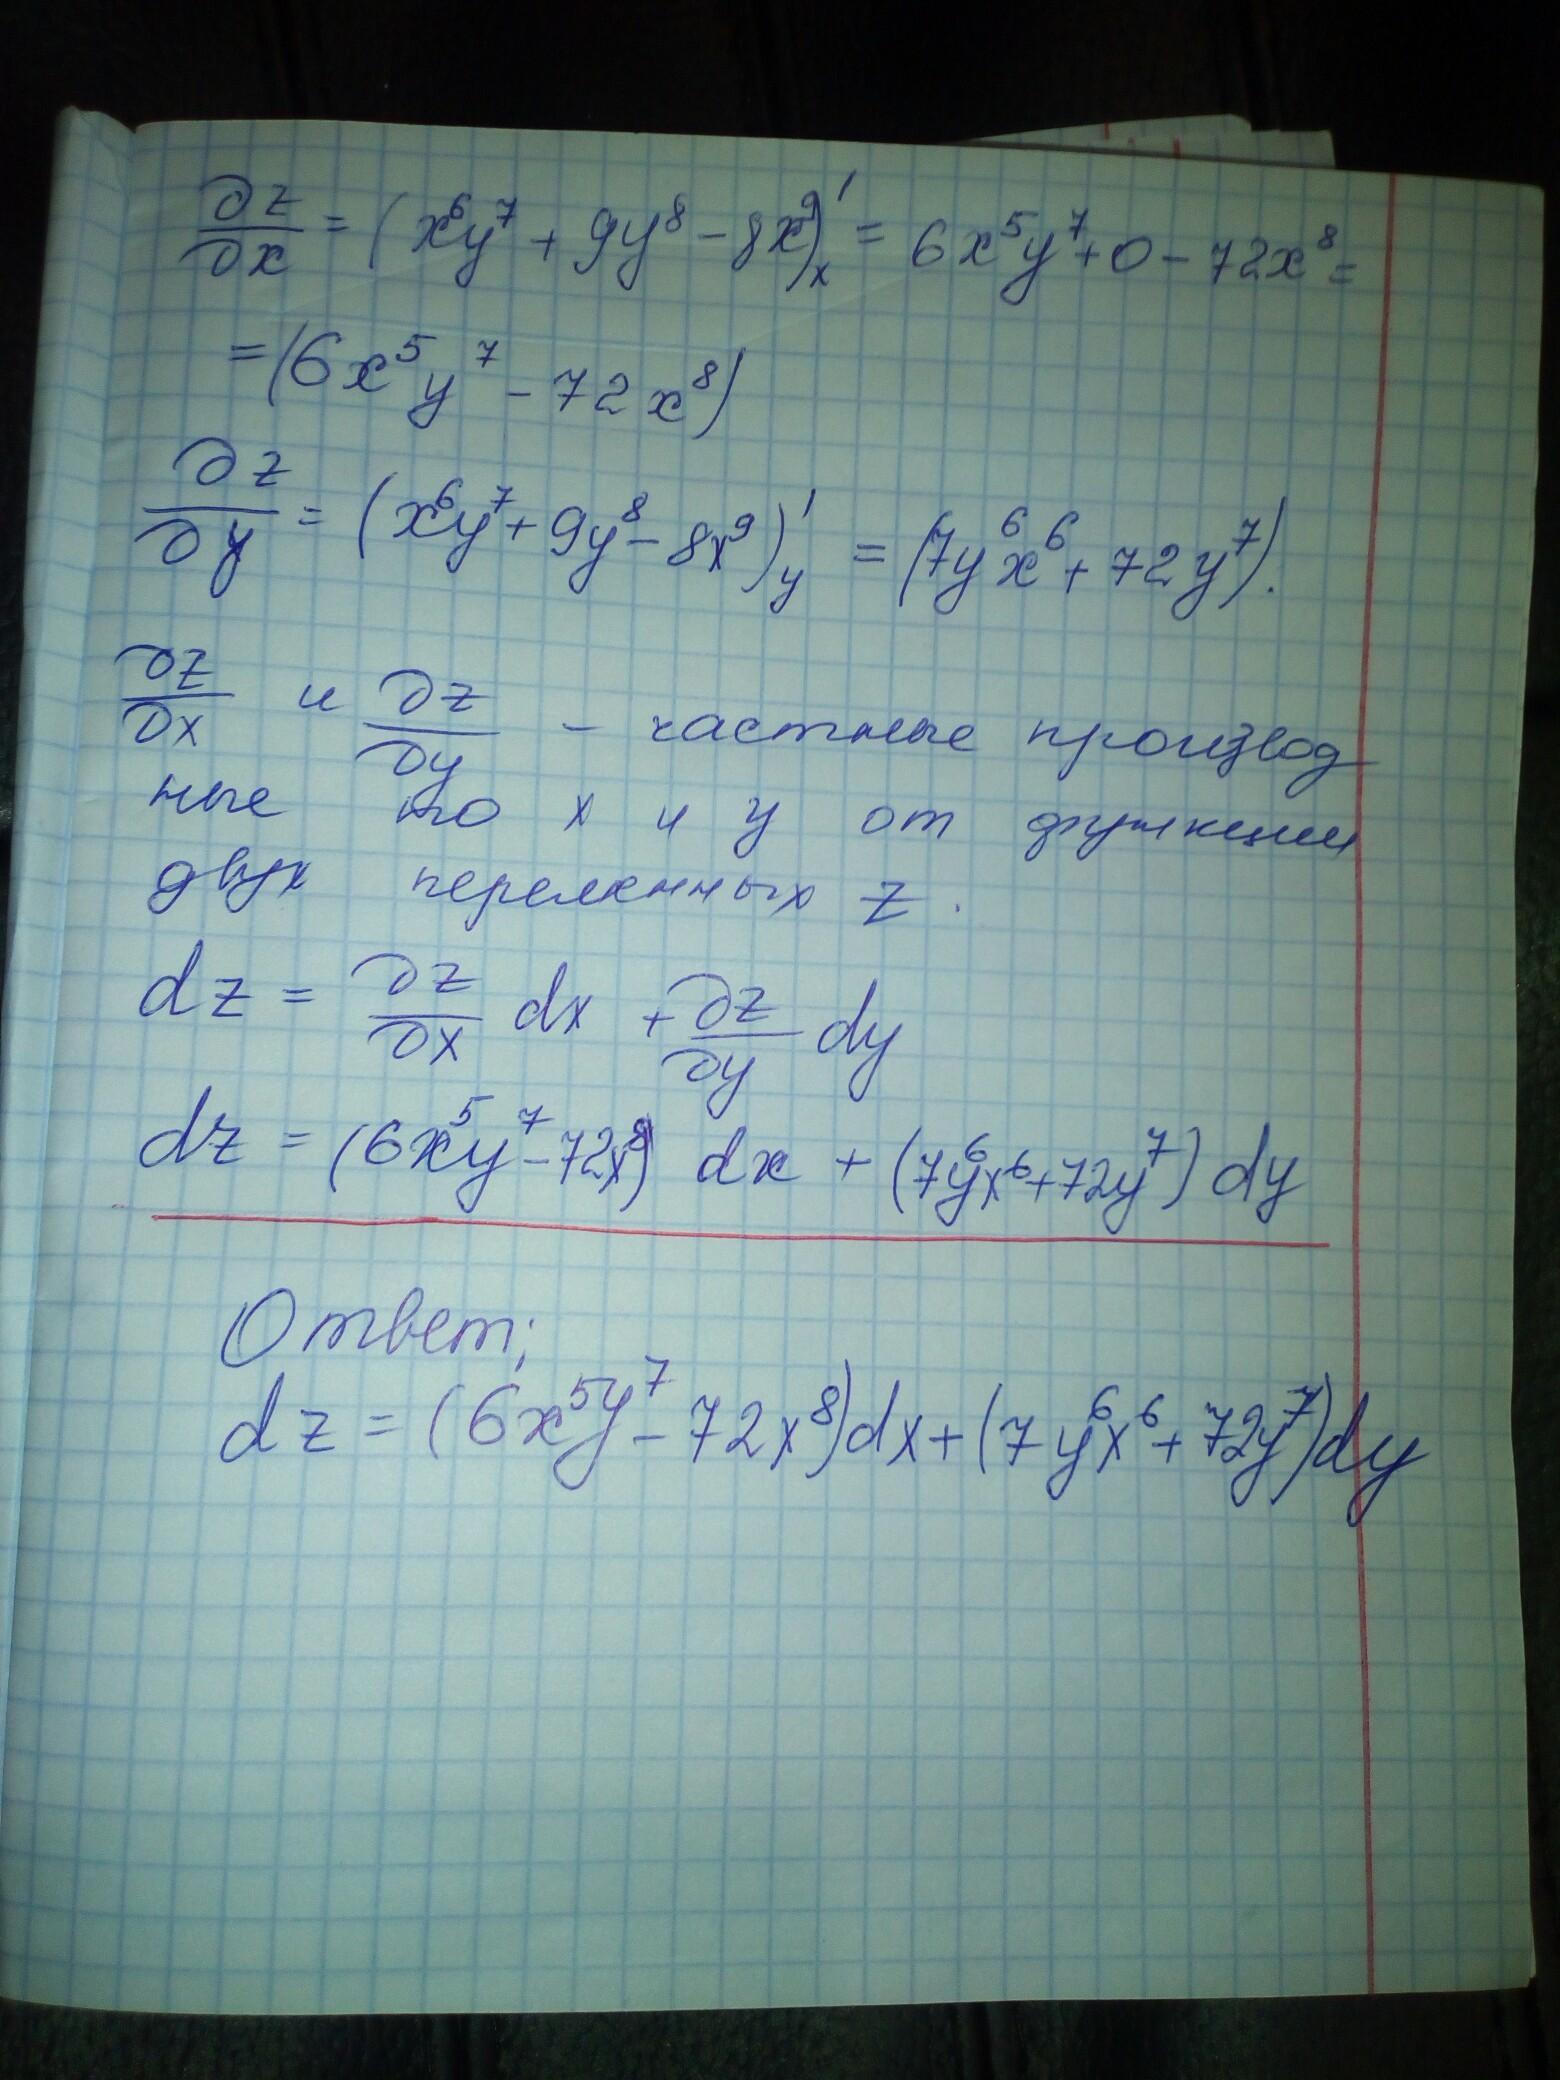 ∂z/∂x = (x⁶y⁷ + 9y⁸ - 8x⁹)'ₓ = 6x⁵y⁷ + 0 - 72x⁸ =
= (6x⁵y⁷ - 72x⁸)
∂z/∂y = (x⁶y⁷ + 9y⁸ - 8x⁹)'_y = (7y⁶x⁶ + 72y⁷).
∂z/∂x и ∂z/∂y - частные производ
ные по x и y от функции
двух переменных z.
dz = ∂z/∂x dx + ∂z/∂y dy
dz = (6x⁵y⁷ - 72x⁸) dx + (7y⁶x⁶ + 72y⁷) dy
Ответ:
dz = (6x⁵y⁷ - 72x⁸)dx + (7y⁶x⁶ + 72y⁷)dy